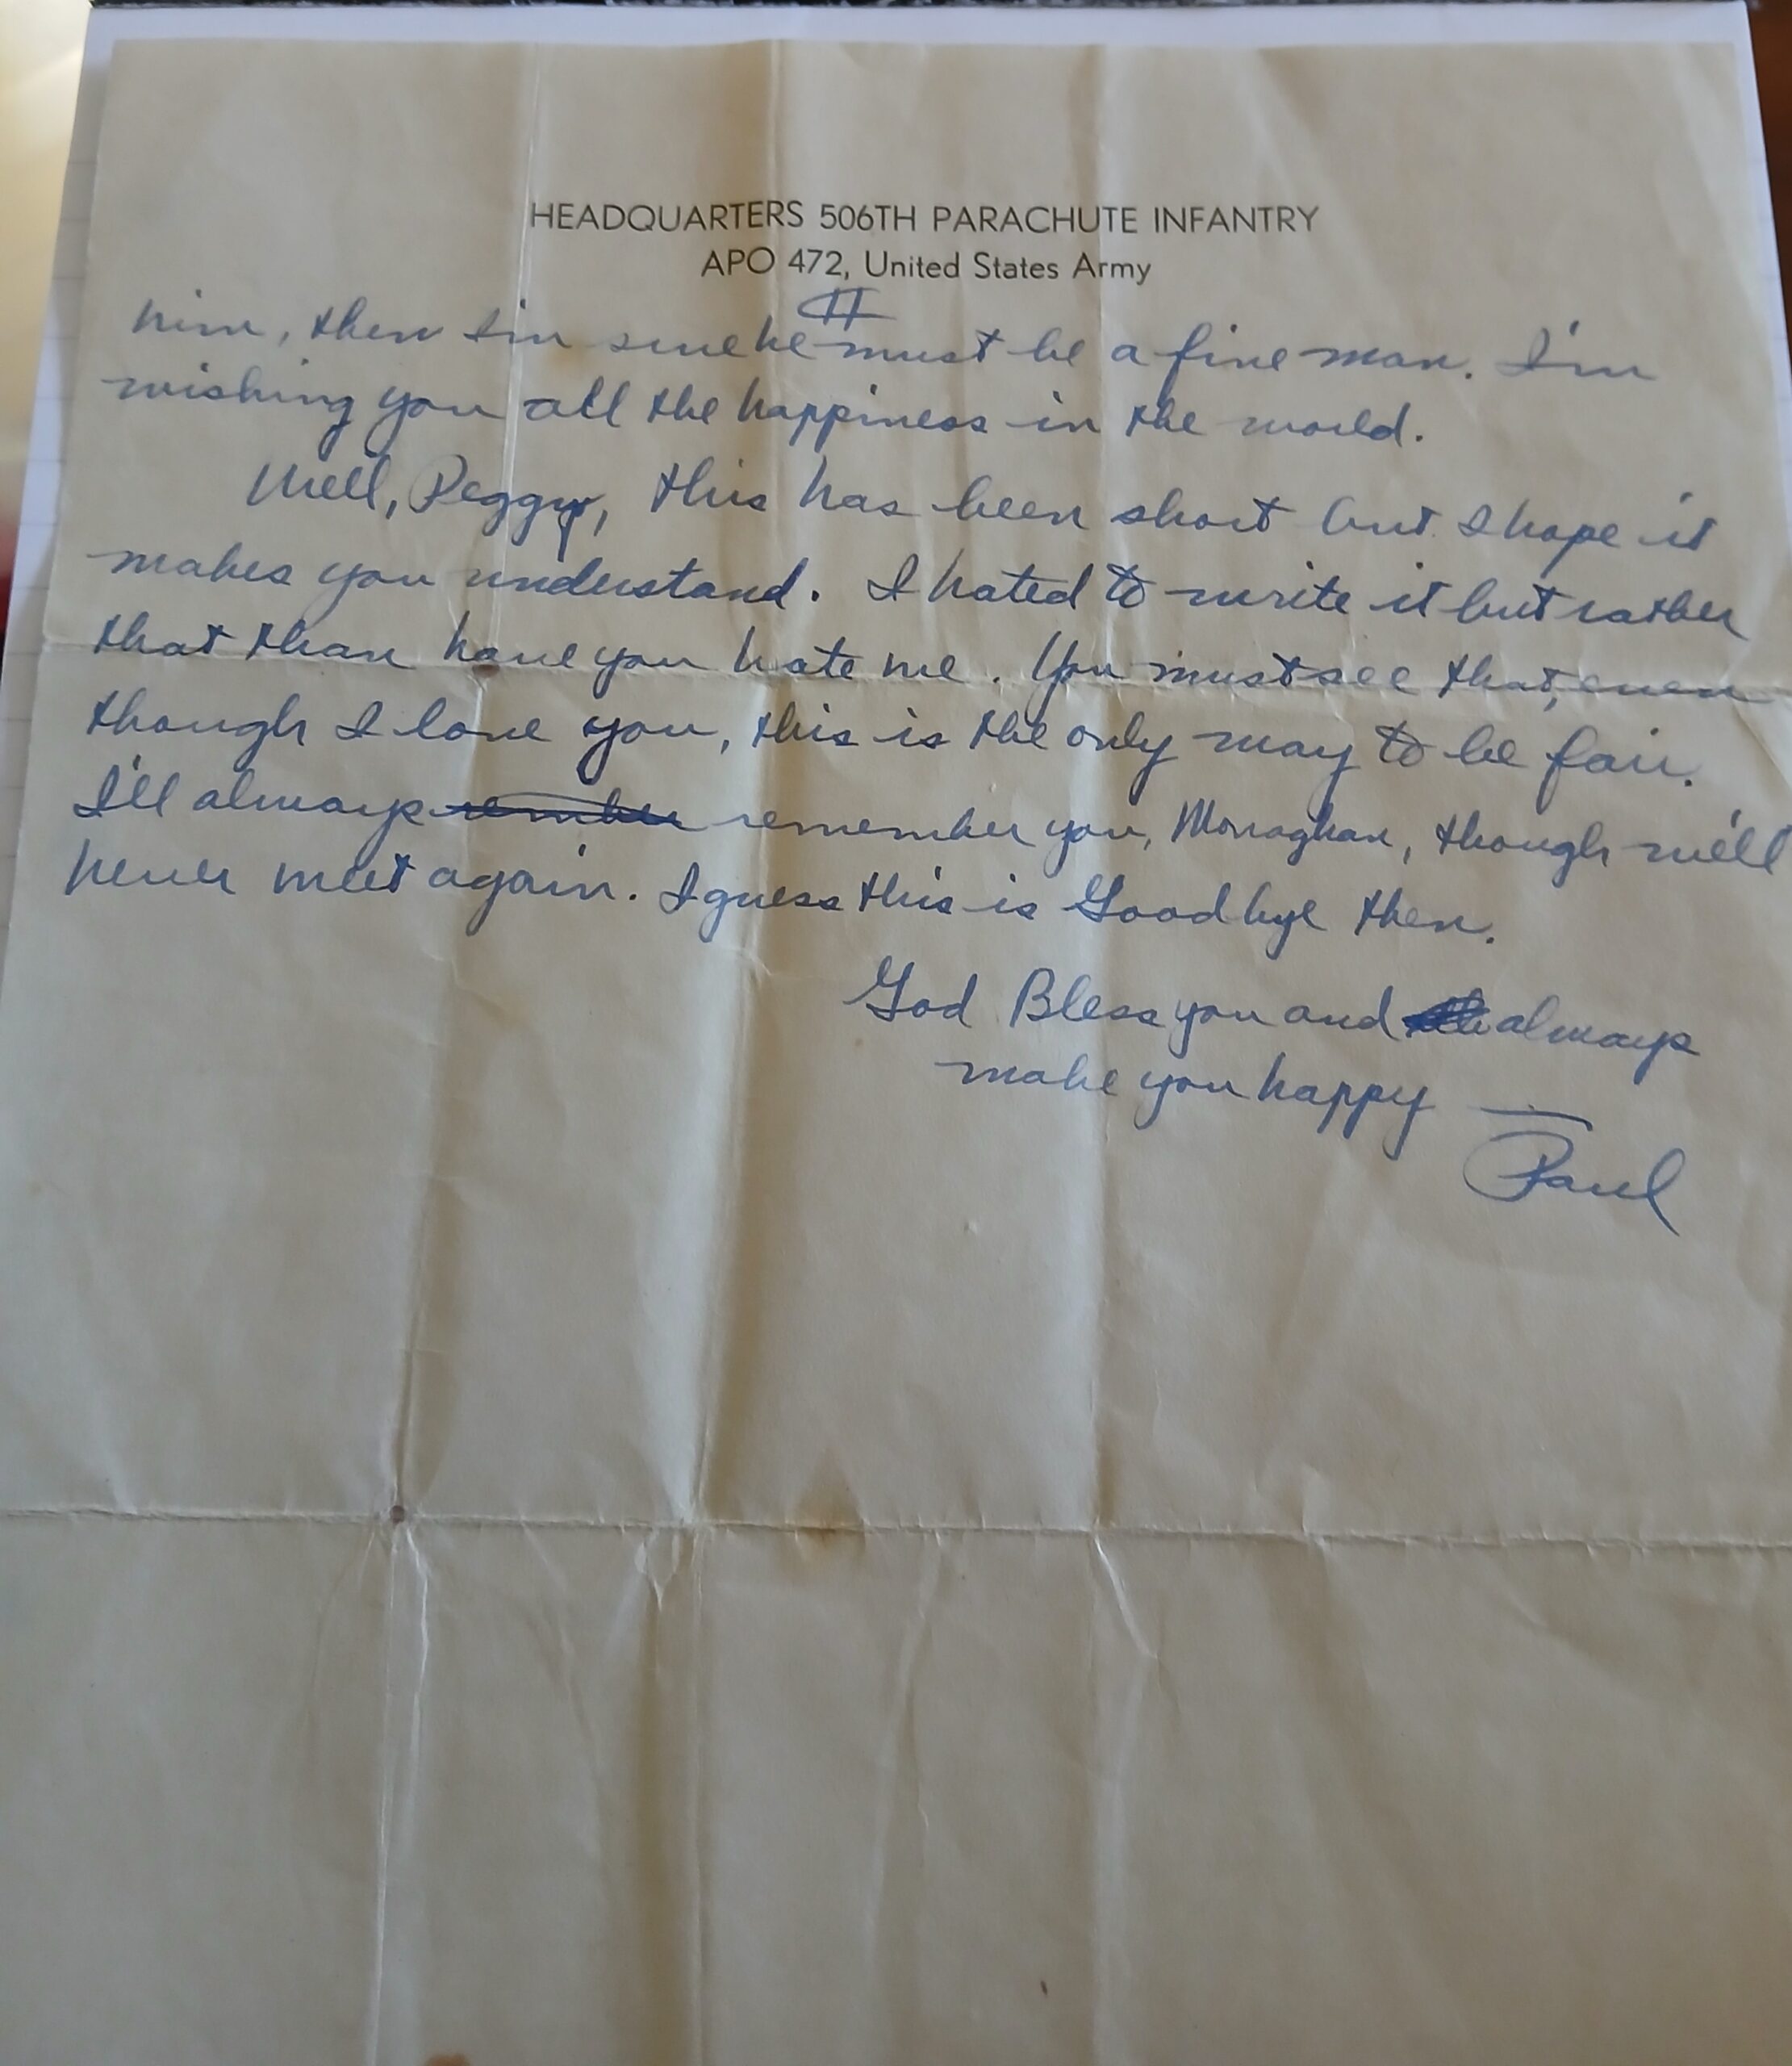 HEADQUARTERS 506TH PARACHUTE INFANTRY
APO 472, United States Army
II
him, then I'm sure he must be a fine man. I'm
wishing you all the happiness in the world.
Well, Peggy, this has been short but I hope it
makes you understand. I hated to write it but rather
that than have you hate me. You must see that, even
though I love you, this is the only way to be fair.
I'll always remember you, Monaghan, though we'll
never meet again. I guess this is Goodbye then.
God Bless you and always
make you happy —
Paul